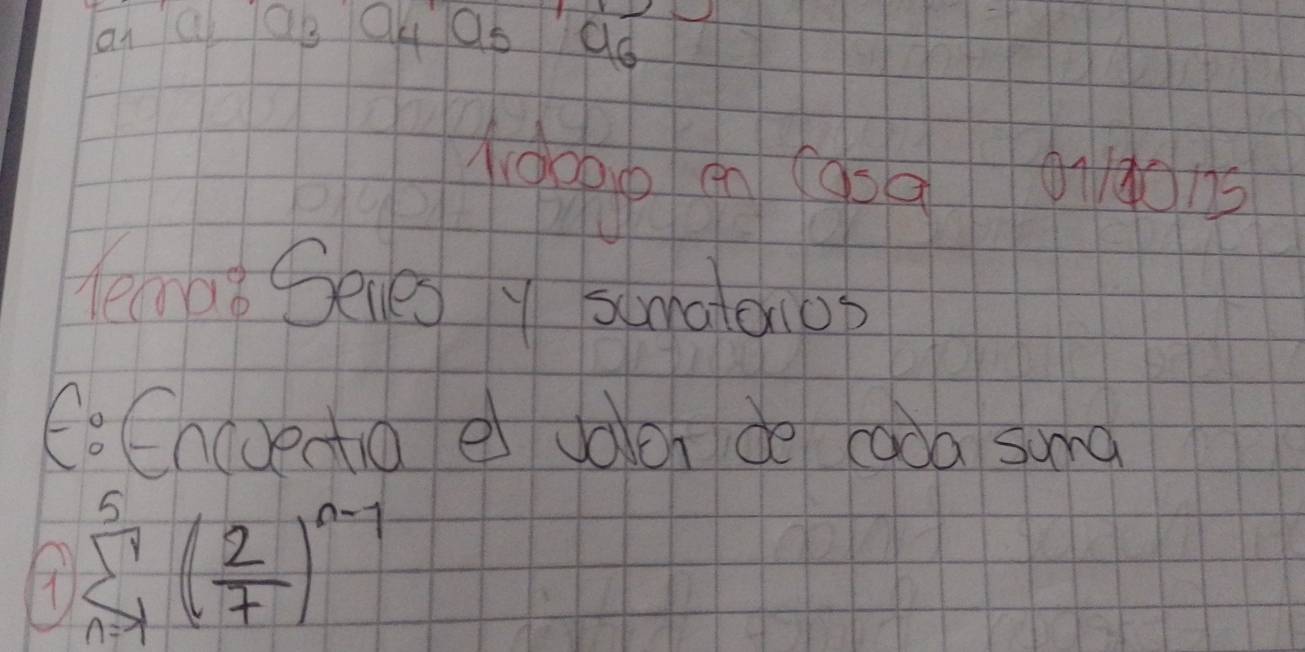 a1 a a3 a4 a5 a6
Trabajo en Casa
Tema: Series y sumatorios
E: Encuentra el valor de cada suma
① \sum_{n=1}^{5} \left(\frac{2}{7}\right)^{n-1}